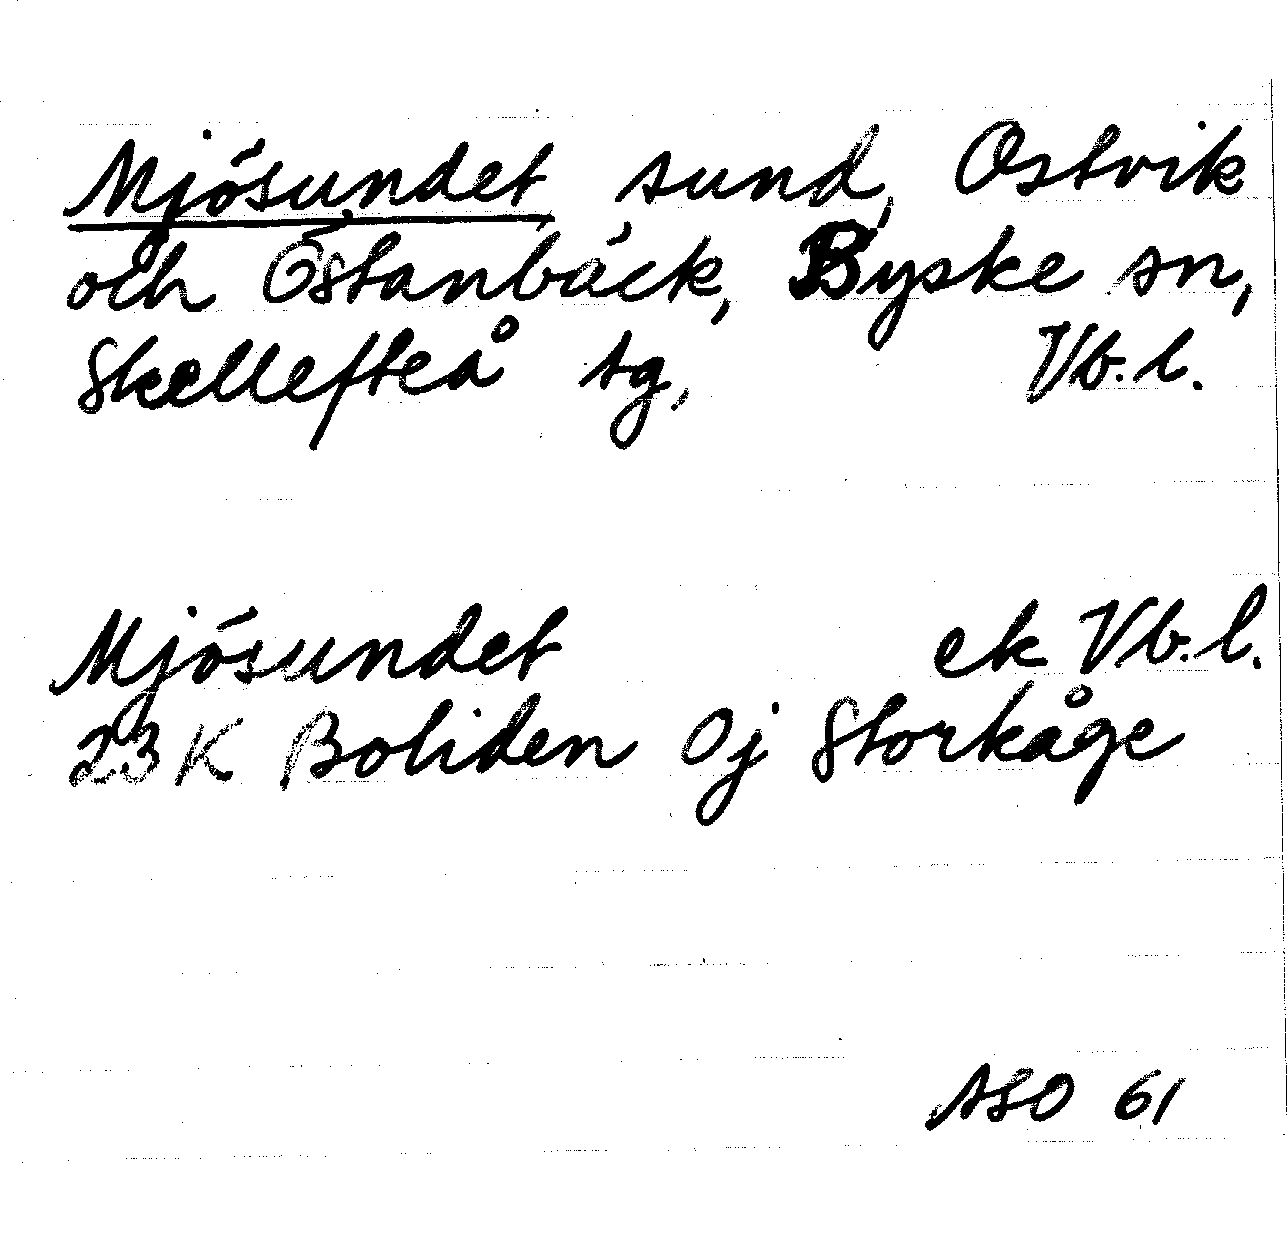 Mjösundet sund, Ostvik
och Östanbäck, Byske sn,
Skellefteå tg, Vb.l.
Mjösundet ek Vb.l.
23K Boliden 0j Storkåge
ASO 61